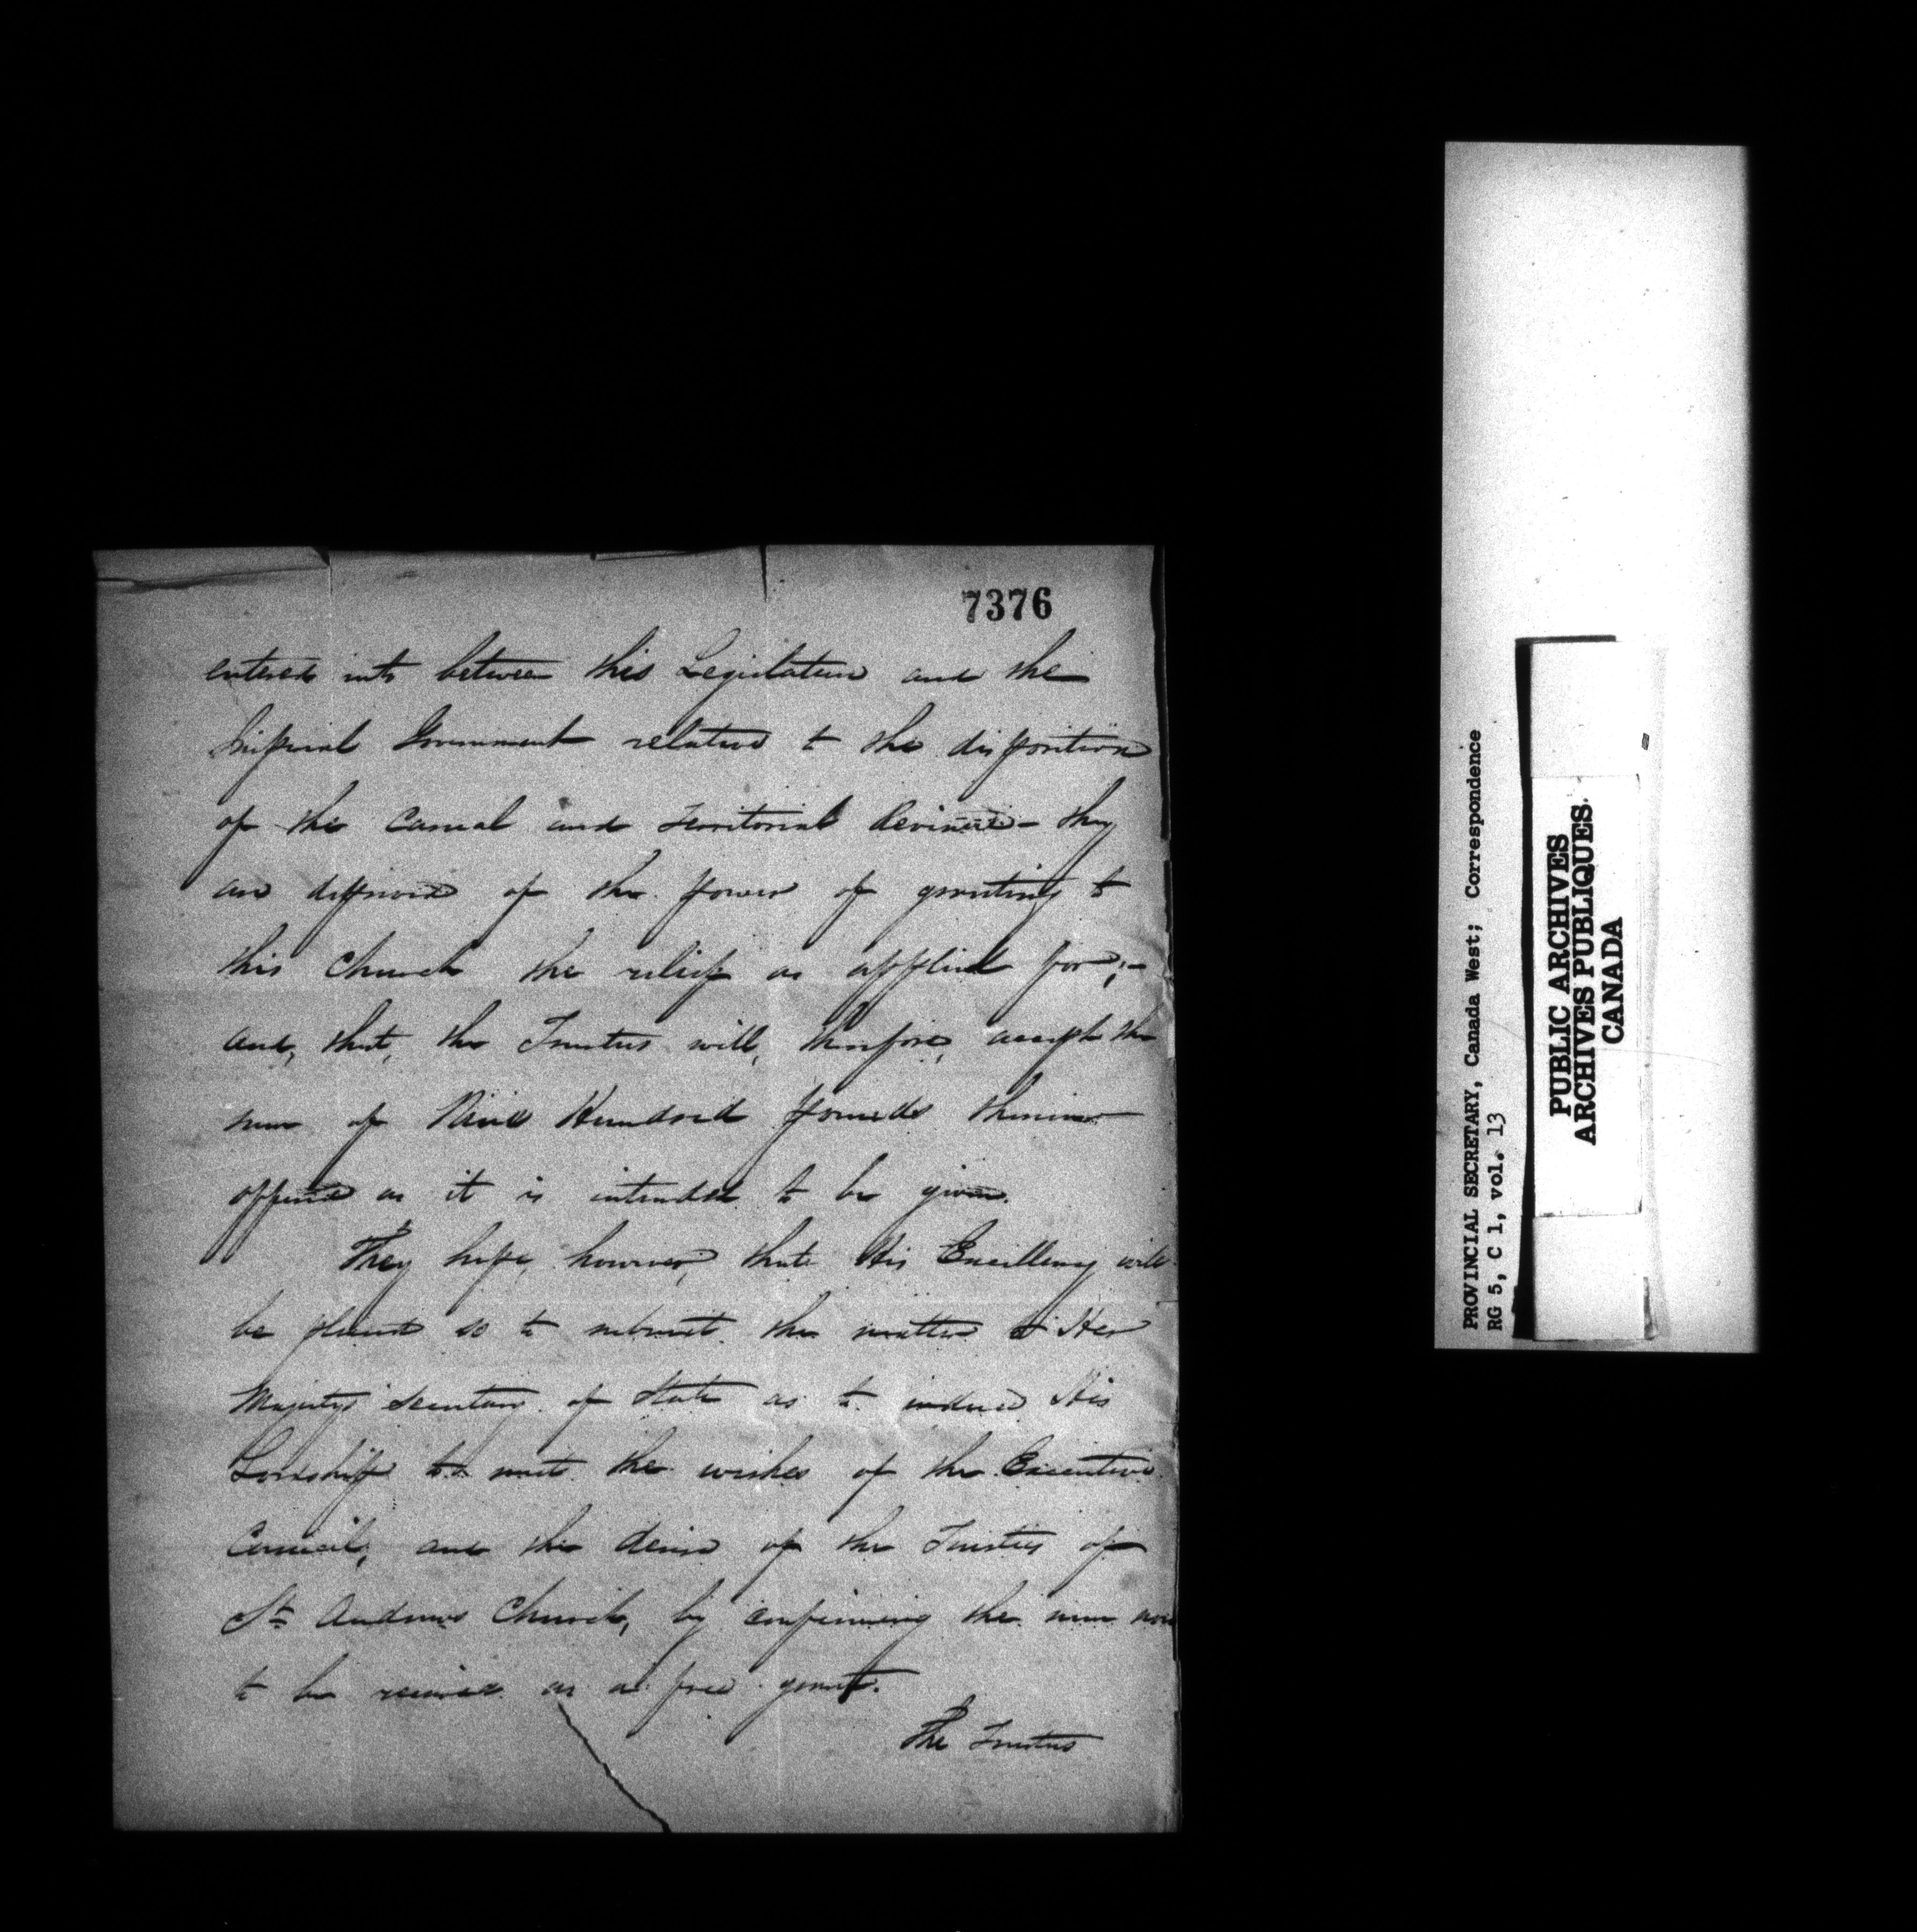 7376
entered into between this Legislature and the
Imperial Government relative to the disposition
of the Casual and Territorial Revenue – they
are deprived of the power of granting to
this Church the relief as applied for; –
and, that, the Trustees will, therefore, accept the
sum of Nine Hundred pounds
offered as it is intended to be given.
They hope, however, that His Excellency will
be pleased so to submit the matter to Her
Majesty's Secretary of State as to induce His
Lordship to meet the wishes of the Executive
Council, and the desire of the Trustees of
St Andrews Church, by confirming the sum now
to be received as a free grant.
The Trustees
PROVINCIAL SECRETARY, Canada West; Correspondence
RG 5, C 1, vol. 13
PUBLIC ARCHIVES
ARCHIVES PUBLIQUES
CANADA